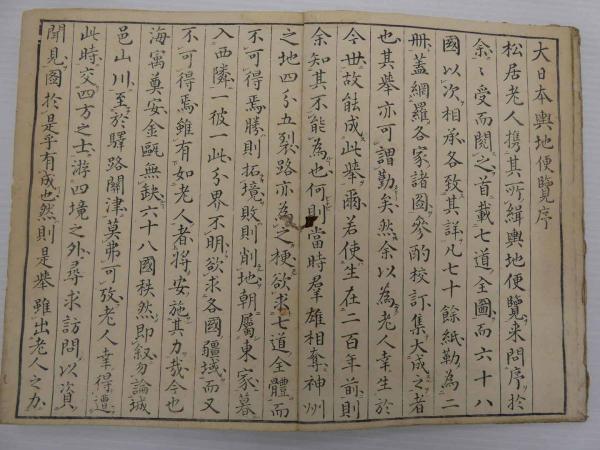 大日本輿地便覽序
松居老人携其所緝輿地便覽来問序於
余〻受而閲之首載七道全圖而六十八
國以次相承各致其詳凡七十餘紙勒為二
冊蓋網羅各家諸圖參酌校訂集大成之者
也其舉亦可謂勤矣然余以為老人幸生於
今世故能成此舉爾若使生在二百年前則
余知其不能為也何則當時羣雄相奪神州
之地四分五裂路亦為之梗欲求七道全體而
不可得焉勝則拓境敗則削地朝屬東家暮
入西隣一彼一此分界不明欲求各國疆域而又
不可得焉雖有如老人者將安施其力哉今也
海㝢奠安金甌無缺六十八國秩然即叙勿論城
邑山川至於驛路關津莫弗可攷老人幸得遭
此時交四方之士游四境之外尋求訪問以資
聞見圖於是乎有成也然則是舉雖出老人之力